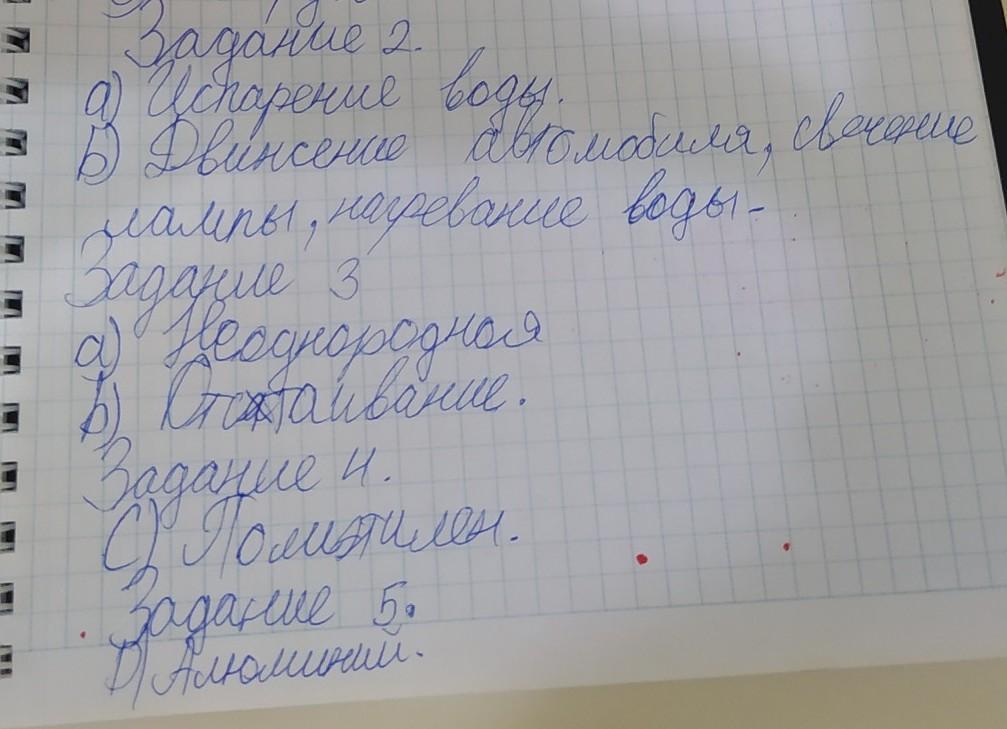 Задание 2.
а) Испарение воды.
b) Движение автомобиля, свечение
лампы, нагревание воды.
Задание 3
а) Неоднородная
b) Отстаивание.
Задание 4.
C) Полиэтилен.
Задание 5.
D) Алюминий.